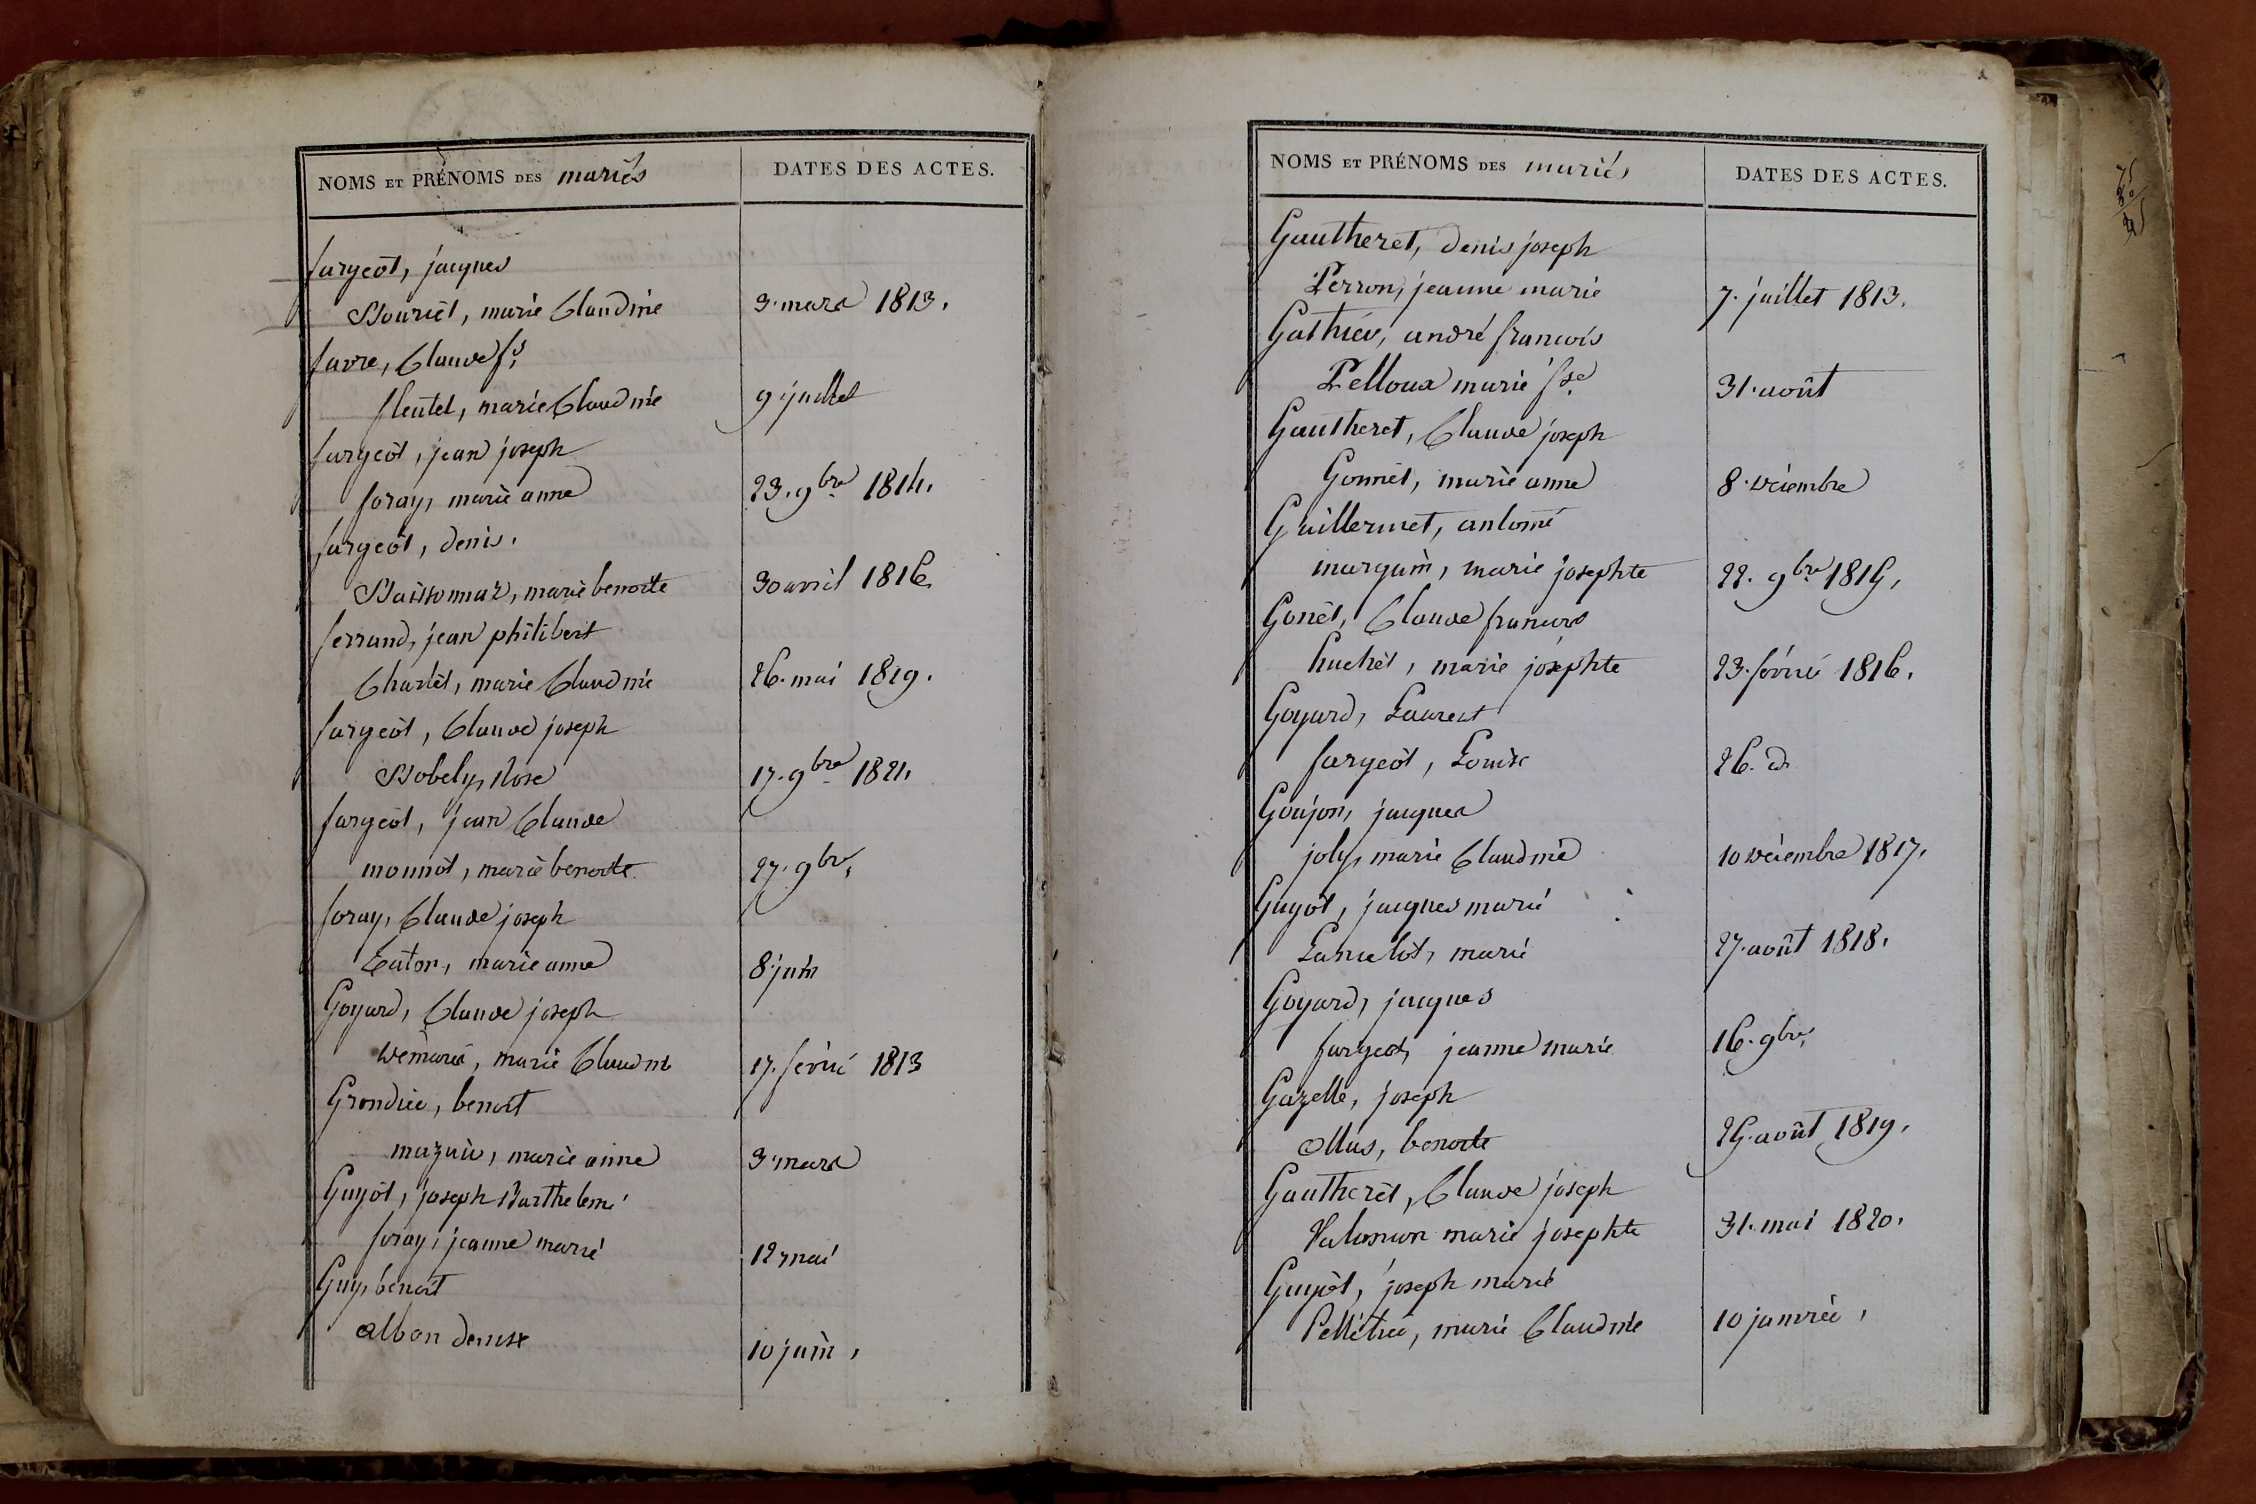 NOMS ET PRÉNOMS DES mariés
DATES DES ACTES.
fargeot, jacques
Bouriet, marie Claudine 3. mars 1813.
favre, Claude fs.
fleutet, marie Claudine 9 juillet
fargeot, jean joseph
foray, marie anne 23. 9bre 1814.
fargeot, denis.
Buissonnaz, marie benoite 30 avril 1816.
ferrand, jean philibert
Charlet, marie Claudine 26. mai 1819.
fargeot, Claude joseph
Bobely, Rose 17. 9bre 1821.
fargeot, jean Claude
monnot, marie benoite 27. 9bre.
foray, Claude joseph
marie anne 8 juin
Goyard, Claude joseph
marie Claudine 17. février 1813
Grondier, benoit
mazuir, marie anne 3. mars
Guyot, joseph Barthelemi
foray, jeanne marie 12 mai
Guy, benoit
albon denise 10 juin,
NOMS ET PRÉNOMS DES mariés
DATES DES ACTES.
Gautheret, denis joseph
Perron, jeanne marie 7. juillet 1813.
Gathier, andré francois
Pelloux marie fse. 31. août
Gautheret, Claude joseph
Gonnet, marie anne 8. décembre
Guillermet, antoine
marguin, marie josephte 22. 9bre 1815.
Gonet, Claude francois
huchet, marie josephte 23. février 1816.
Goyard, Laurent
fargeot, Louise 26. d
Goujon, jacques
joly, marie Claudine 10 décembre 1817.
Guyot, jacques marie
Lancelot, marie 27. août 1818.
Goyard, jacques
fargeot, jeanne marie 16. 9bre,
Gazelle, joseph
Mus, benoite 25. août 1819.
Gautheret, Claude joseph
marie josephte 31. mai 1820.
Guyot, joseph marie
Pelletier, marie Claudine 10 janvier,